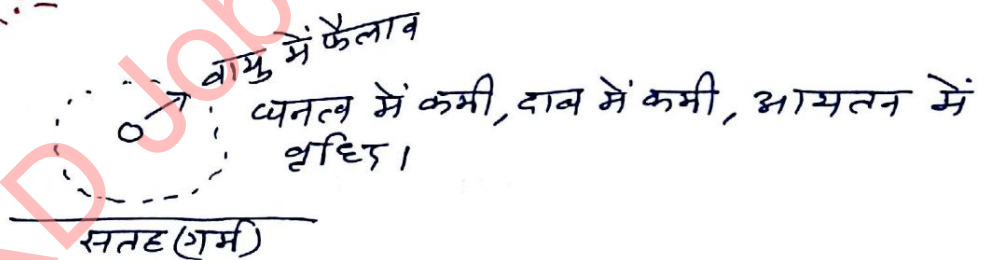 वायु में फैलाव
घनत्व में कमी, दाब में कमी, आयतन में
वृद्धि।
सतह (गर्म)